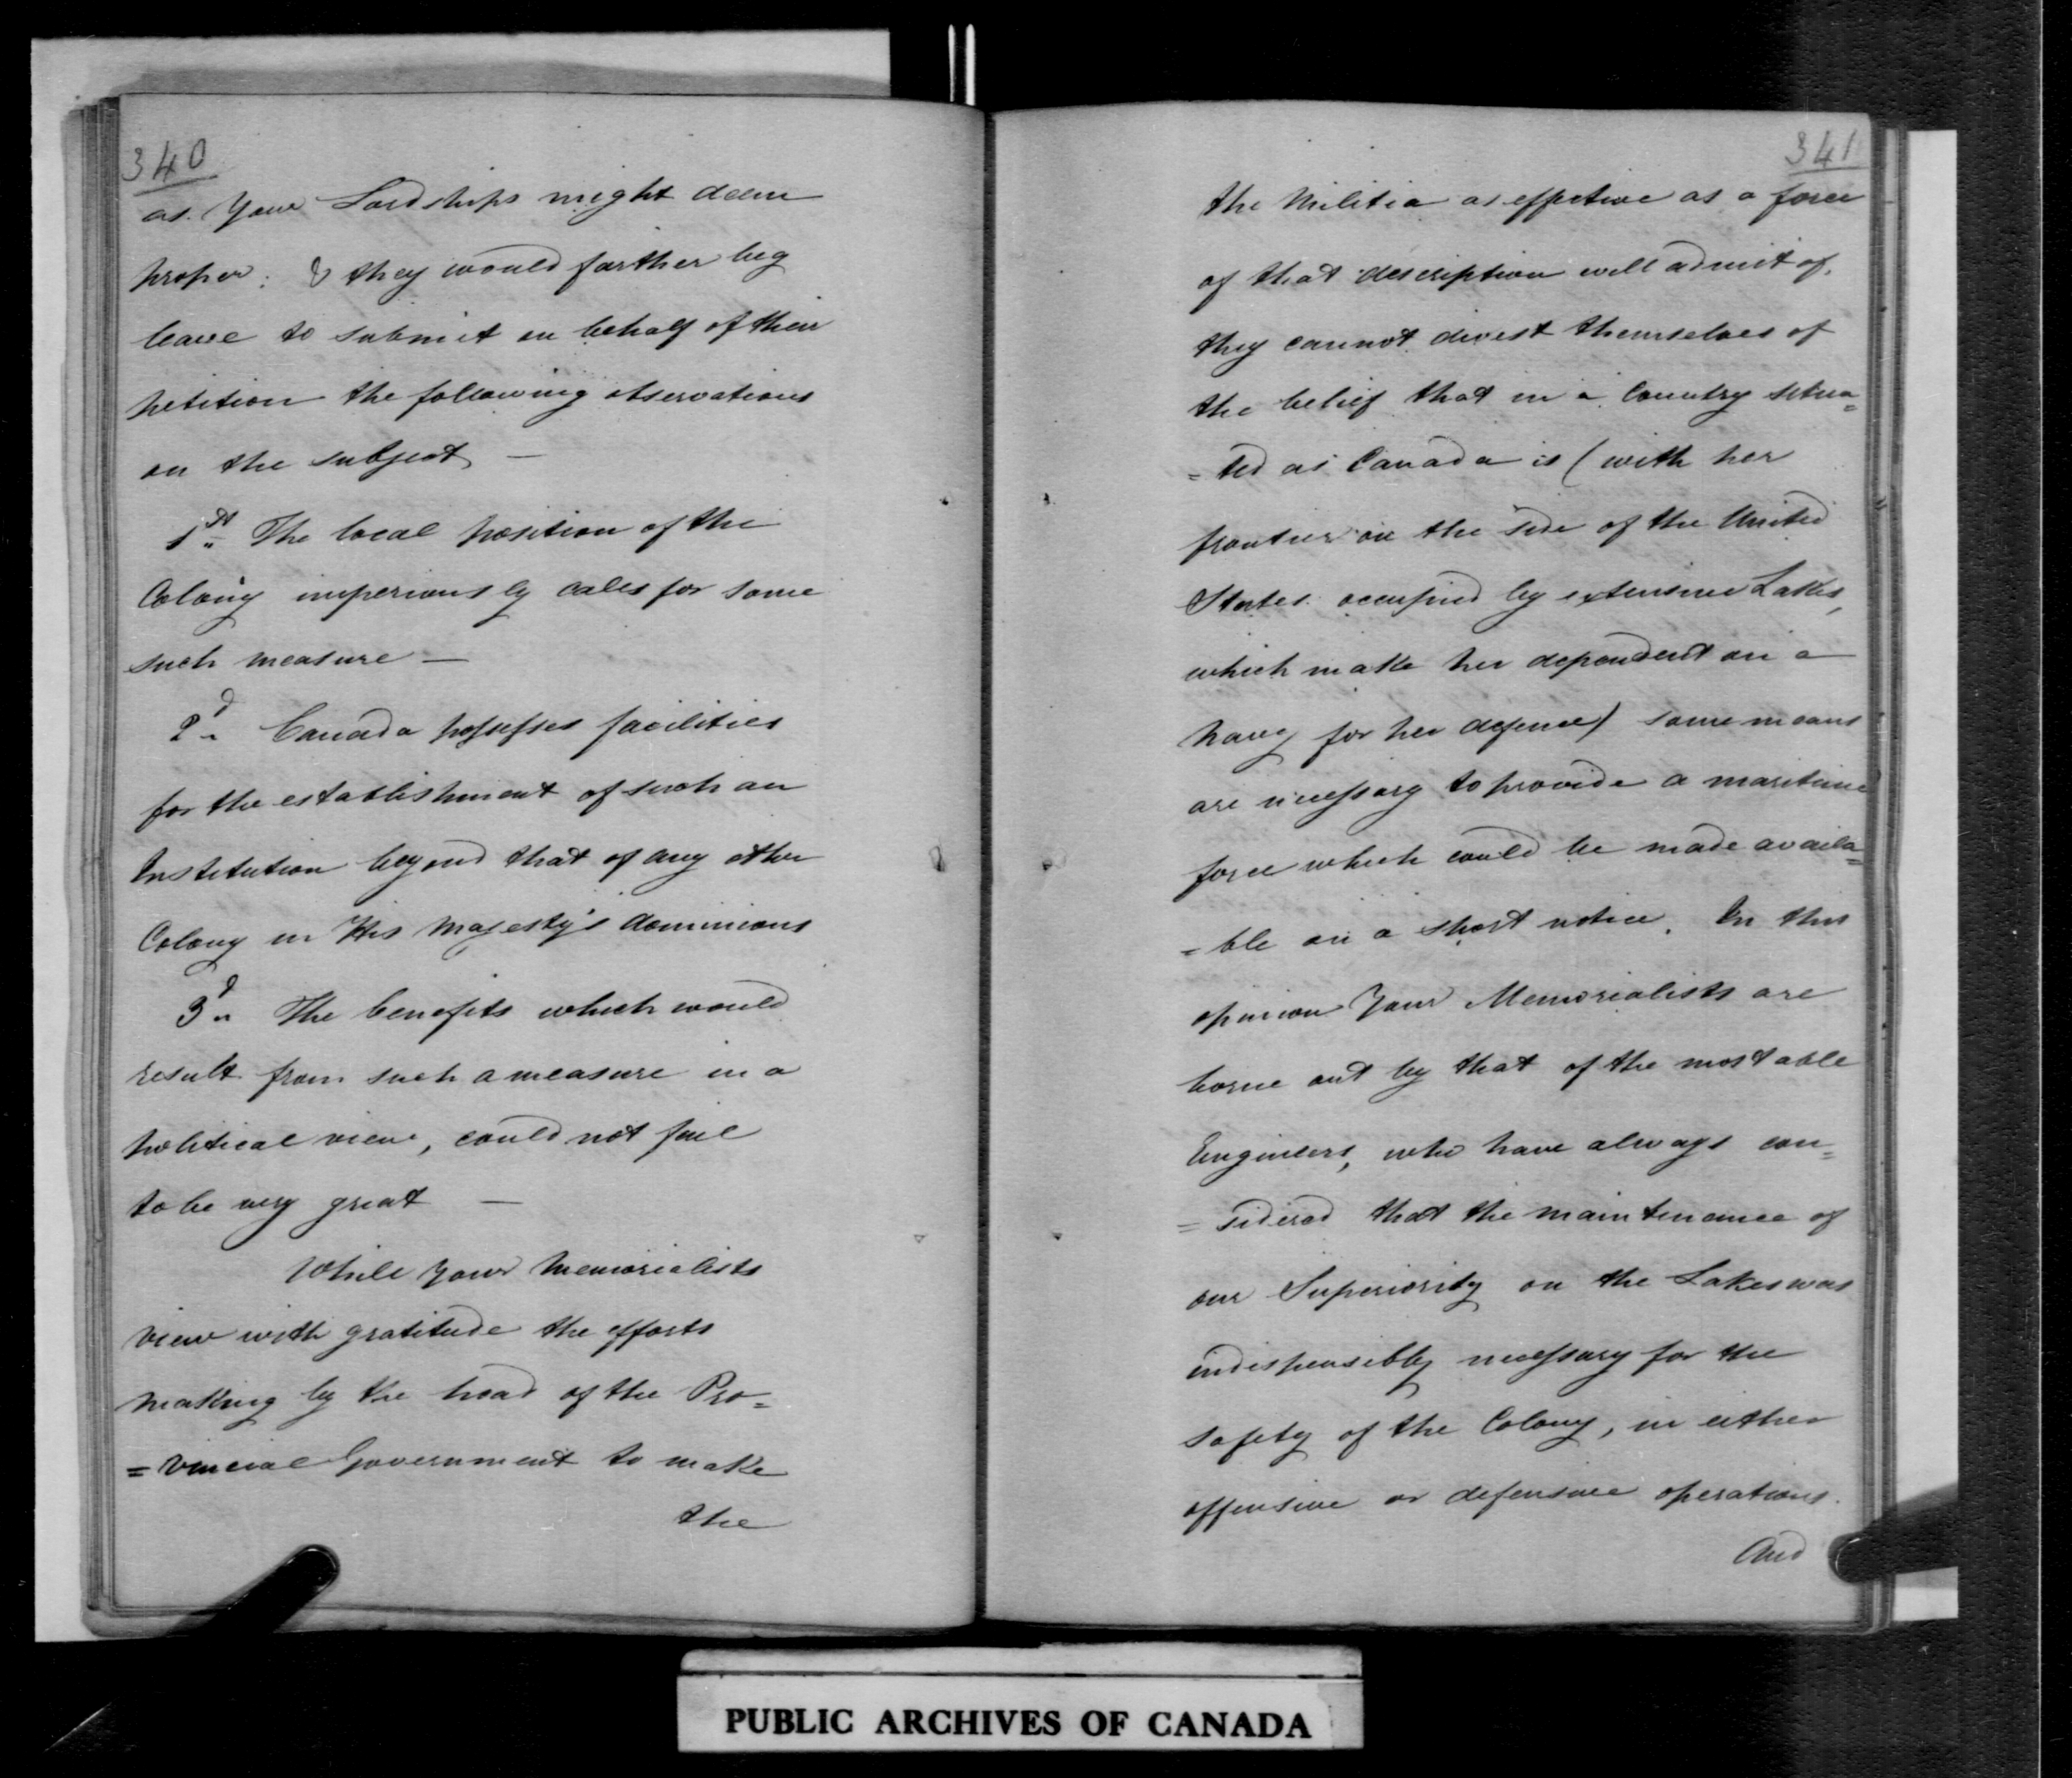 340
as Your Lordships might deem
proper: & they would farther beg
leave to submit on behalf of their
petition the following observations
on the subject —
1st The local position of the
Colony imperiously calls for some
such measure —
2d Canada possesses facilities
for the establishment of such an
Institution beyond that of any other
Colony in His Majesty's dominions
3d The benefits which would
result from such a measure in a
political view, could not fail
to be very great —
While Your Memorialists
view with gratitude the efforts
making by the head of the Pro=
=vincial Government to make
the
341
the Militia as effective as a force
of that description will admit of,
they cannot divest themselves of
the belief that in a Country situa=
=ted as Canada is (with her
frontier on the side of the United
States occupied by extensive Lakes,
which make her dependent on a
navy for her defence) some means
are necessary to provide a maritime
force which could be made availa=
=ble on a short notice. In this
opinion Your Memorialists are
borne out by that of the most able
Engineers, who have always con=
=sidered that the maintenance of
our Superiority on the Lakes was
indispensibly necessary for the
safety of the Colony, in either
offensive or defensive operations.
And
PUBLIC ARCHIVES OF CANADA